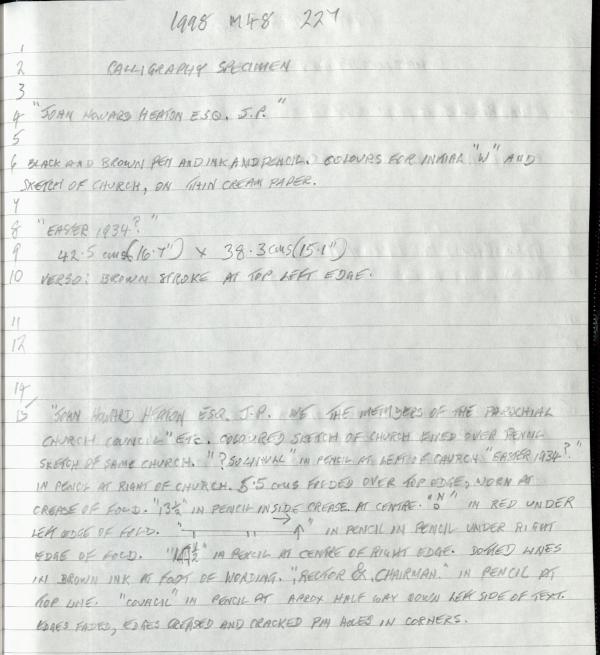 1998 M48 227
1
2 CALLIGRAPHY SPECIMEN
3
4 "JOHN HOWARD HEATON ESQ. J.P."
5
6 BLACK AND BROWN PEN AND INK AND PENCIL. COLOURS FOR INITIAL "W" AND
SKETCH OF CHURCH, ON THIN CREAM PAPER.
7
8 "EASTER 1934?"
9 42.5 cms (16.7") x 38.3 cms (15.1")
10 VERSO: BROWN STROKE AT TOP LEFT EDGE.
11
12
14
15 "JOHN HOWARD HEATON ESQ. J.P. WE THE MEMBERS OF THE PAROCHIAL
CHURCH COUNCIL" ETC. COLOURED SKETCH OF CHURCH FIXED OVER PENCIL
SKETCH OF SAME CHURCH. "? " IN PENCIL AT LEFT OF CHURCH "EASTER 1934?"
IN PENCIL AT RIGHT OF CHURCH. 5.5 cms FOLDED OVER TOP EDGE, WORN AT
CREASE OF FOLD. "13½" IN PENCIL INSIDE CREASE AT CENTRE. " " IN RED UNDER
LEFT EDGE OF FOLD. " " IN PENCIL IN PENCIL UNDER RIGHT
EDGE OF FOLD. " " IN PENCIL AT CENTRE OF RIGHT EDGE. DOTTED LINES
IN BROWN INK AT FOOT OF WORDING. "RECTOR & CHAIRMAN." IN PENCIL AT
TOP LINE. "COUNCIL" IN PENCIL AT APROX HALF WAY DOWN LEFT SIDE OF TEXT.
EDGES FADED, EDGES CREASED AND CRACKED PIN HOLES IN CORNERS.